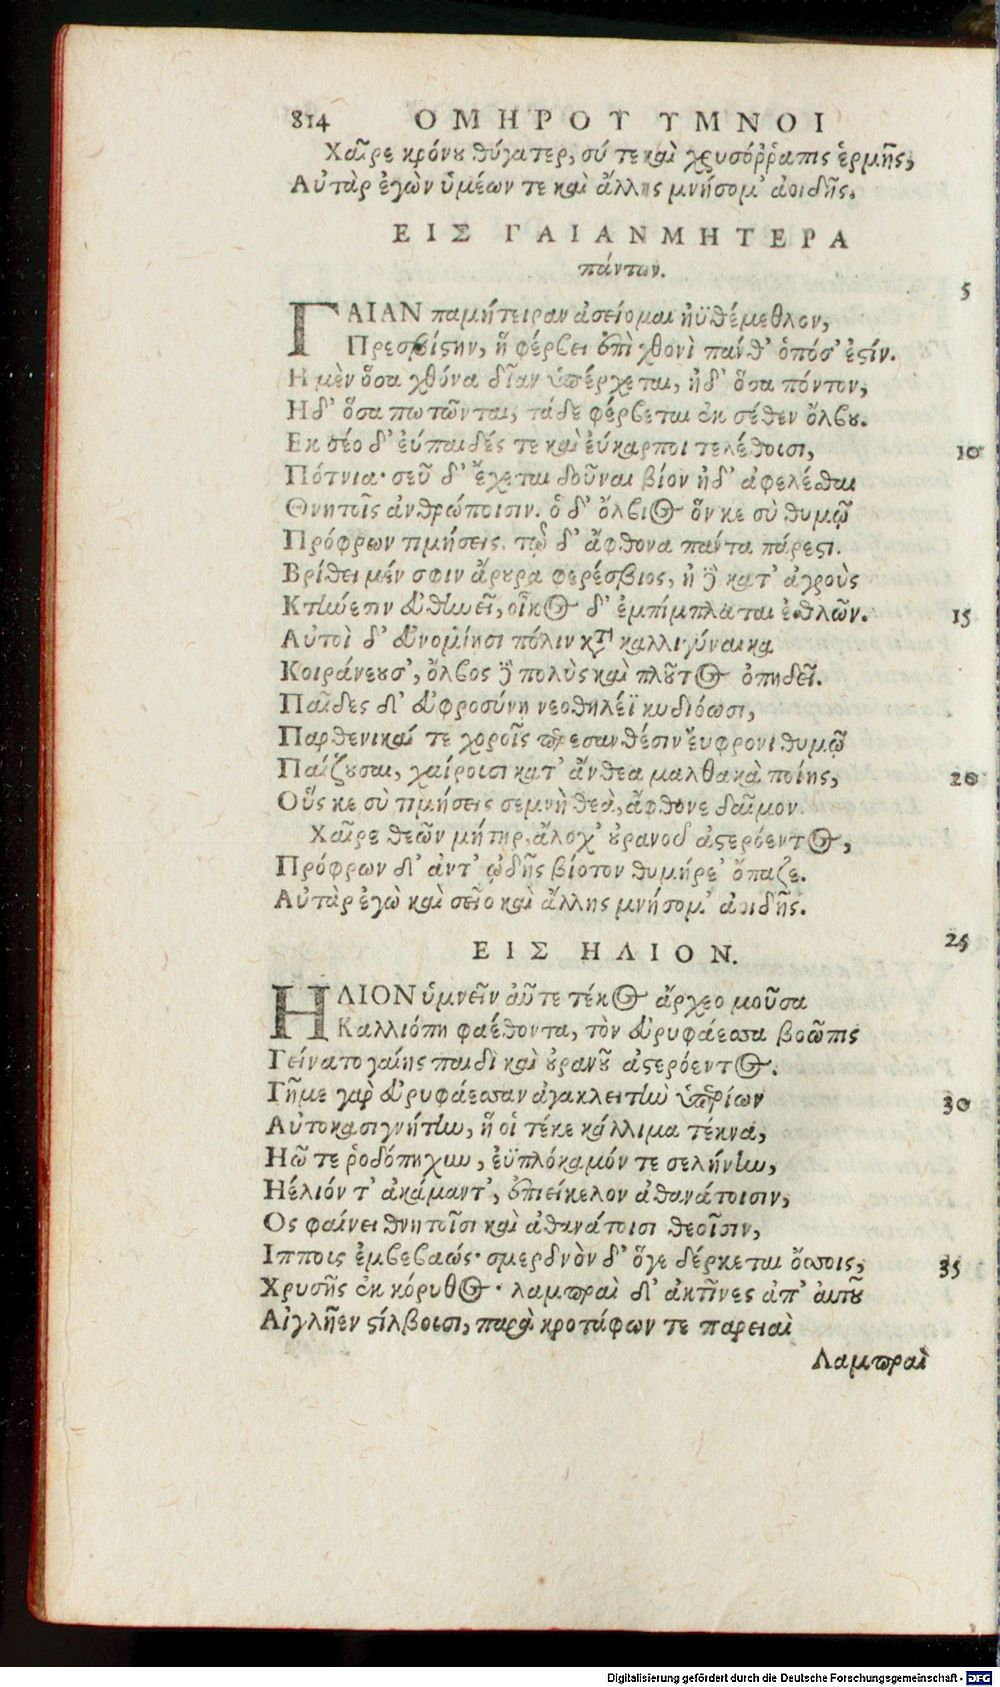 814 ΟΜΗΡΟΥ ΥΜΝΟΙ
Χαῖρε κρόνου θύγατερ, σύ τε καὶ χρυσόῤῥαπις ἑρμῆς,
Αὐτὰρ ἐγὼν ὑμέων τε καὶ ἄλλης μνήσομ' ἀοιδῆς.
ΕΙΣ ΓΑΙΑΝ ΜΗΤΕΡΑ
πάντων.
5
ΓΑΙΑΝ παμήτειραν ἀείσομαι ἠϋθέμεθλον,
Πρεσβίστην, ἣ φέρβει ἐπὶ χθονὶ πάνθ' ὁπόσ' ἐστίν.
Η μὲν ὅσα χθόνα δῖαν ὑπέρχεται, ἠδ' ὅσα πόντον,
Ηδ' ὅσα πωτῶνται, τάδε φέρβεται ἐκ σέθεν ὄλβου.
Εκ σέο δ' εὔπαιδές τε καὶ εὔκαρποι τελέθουσι,
10
Πότνια· σεῦ δ' ἔχεται δοῦναι βίον ἠδ' ἀφελέσθαι
Θνητοῖς ἀνθρώποισιν. ὁ δ' ὄλβιος ὅν κε σὺ θυμῷ
Πρόφρων τιμήσεις. τῷ δ' ἄφθονα πάντα πάρεστι.
Βρίθει μέν σφιν ἄρουρα φερέσβιος, ἠδὲ κατ' ἀγροὺς
Κτήνεσιν εὐθηνεῖ, οἶκος δ' ἐμπίμπλαται ἐσθλῶν.
15
Αὐτοὶ δ' εὐνομίησι πόλιν κάτα καλλιγύναικα
Κοιράνεουσ', ὄλβος δὲ πολὺς καὶ πλοῦτος ὀπηδεῖ.
Παῖδες δ' εὐφροσύνῃ νεοθηλέϊ κυδιόωσι,
Παρθενικαί τε χοροῖς περεσανθέσιν εὔφρονι θυμῷ
Παίζουσαι, χαίρουσι κατ' ἄνθεα μαλθακὰ ποίης,
20
Οὕς κε σὺ τιμήσεις σεμνὴ θεά, ἄφθονε δαῖμον.
Χαῖρε θεῶν μήτηρ, ἄλοχ' οὐρανοῦ ἀστερόεντος,
Πρόφρων δ' ἀντ' ᾠδῆς βίοτον θυμήρε' ὄπαζε.
Αὐτὰρ ἐγὼ καὶ σεῖο καὶ ἄλλης μνήσομ' ἀοιδῆς.
25
ΕΙΣ ΗΛΙΟΝ.
ΗΛΙΟΝ ὑμνεῖν αὖτε τέκος ἄρχεο μοῦσα
Καλλιόπη φαέθοντα, τὸν εὐρυφάεσσα βοῶπις
Γείνατο γαίης παιδὶ καὶ οὐρανοῦ ἀστερόεντος.
Γῆμε γαρ εὐρυφάεσσαν ἀγακλειτὴν ὑπερίων
30
Αὐτοκασιγνήτην, ἥ οἱ τέκε κάλλιμα τέκνα,
Ηῶ τε ῥοδόπηχυν, ἐϋπλόκαμόν τε σελήνην,
Ηέλιόν τ' ἀκάμαντ', ἐπιείκελον ἀθανάτοισιν,
Ος φαίνει θνητοῖσι καὶ ἀθανάτοισι θεοῖσιν,
Ιπποις ἐμβεβαώς· σμερδνὸν δ' ὅγε δέρκεται ὄσσοις,
35
Χρυσῆς ἐκ κόρυθος· λαμπραὶ δ' ἀκτῖνες ἀπ' αὐτοῦ
Αἰγλῆεν στίλβουσι, παρὰ κροτάφων τε παρειαὶ
Λαμπραὶ
Digitalisierung gefördert durch die Deutsche Forschungsgemeinschaft - DFG